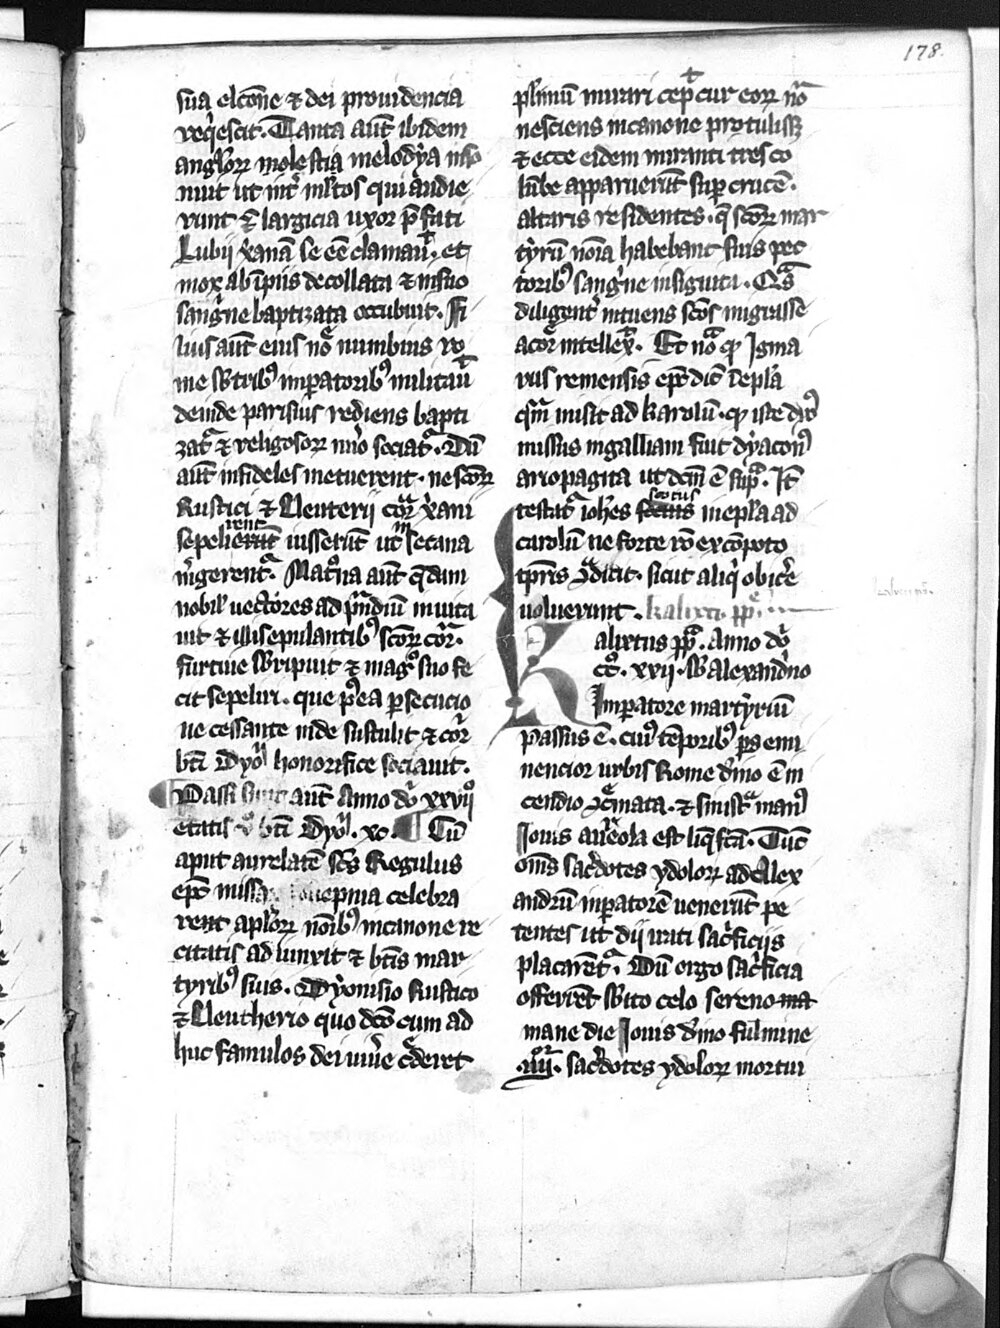 178.
sua elcōne ⁊ dei prouidencia
req̇escit. Tanta aūt ibidem
angl'oꝝ molestia melodẏa inso
nuit ut int' m'ltos qui audie
runt ⁊ largicia uxor p̄fati
Lubij x̄anā se eē clamauit. et
mox ab īpiis decollata ⁊ in suo
sangͥne baptizata occubuit. Fi
lius aūt eius noīe uirbius ro
me sb' tribꝰ imꝑatoribꝰ militauit
deinde parisius rediens bapti
zat᷑ ⁊ religiosoꝝ nūo sociat᷑. Dū
aūt infideles metuerent. ne scōꝝ
Rustici ⁊ Eleuterij cor᷑a x̄ani
sepelirent iusserūt ut in secana
m'gerent᷑. Mat᷑ona aūt q̄dam
nobil' uectores ad p̄ndiū inuita
uit ⁊ illis epulantibꝰ scōꝝ cor᷑a.
furtiue sb'ripuit ⁊ in agͦ suo fe
cit sepeliri. que p'ea ꝑsecucio
ne cessante inde sustulit ⁊ cor᷑i
bt̄i Dyoͥ honorifice sociauit.
Passi sunt aūt Anno dn̄i xxvijͦ
etatis bt̄i Dyoͥ. xc. Cū
aput aurelatē sc̄s Regulus
ep̄c missarū celebra
rent apl'oꝝ noībꝰ in canone re
citatis adiunxit ⁊ bt̄is mar
tyribꝰ suis. Dẏonisio Rustico
⁊ Eleutherio quo dc̄o cum ad
huc famulos dei uiu'e c'deret
pl'imū mirari cepit cur eoꝝ noīa
nesciens in canone protulisset
⁊ ecce eidem miranti tres co
lūbe apparuerūt suꝑ crucē.
altaris residentes. q̄ scōꝝ mar
tẏrū noīa habebant suis pec
toribꝰ sangͥne insignita. Q᷑s
diligent' intuens scōs migrasse
a corꝑe intellexit. Et nota ꝙ Igma
rus remensis ep̄c dicit in ep̄la
qͣm misit ad karolū. ꝙ iste dyoꝰ
missus in galliam fuit dẏaconꝰ
ariopagita ut dc̄m ē supͣ. It̄
testat᷑ ioh̄es scotus in ep̄la ad
carolū ne forte rō ex cōpoto
tp̄ris ꝯtdicat. sicut aliqͥ obic'e
uoluerunt. kalixti pp̄e
Kalixtus pp̄a. anno dn̄i
cc. xxij. sb' alexandͥno
Imperatore martẏriū
passus ē. cuiꝰ tēporibꝰ ps emi
nencior urbis Rome dͥino ē in
cendio ꝯc᷑mata. ⁊ sinistͣ manꝰ
Iouis aur᷑eola est liq̄fc̄a. Tūc
om̄s sac'dotes ydoloꝝ ad alex
andrū inꝑatorē uenerūt pe
tentes ut dij irati sacͥficijs
placarent᷑. Dū ergo sacͥficia
offerrēt sb'ito celo sereno
mane die Iouis dͥino fulmine
.iiij. sac'dotes ydoloꝝ mortui